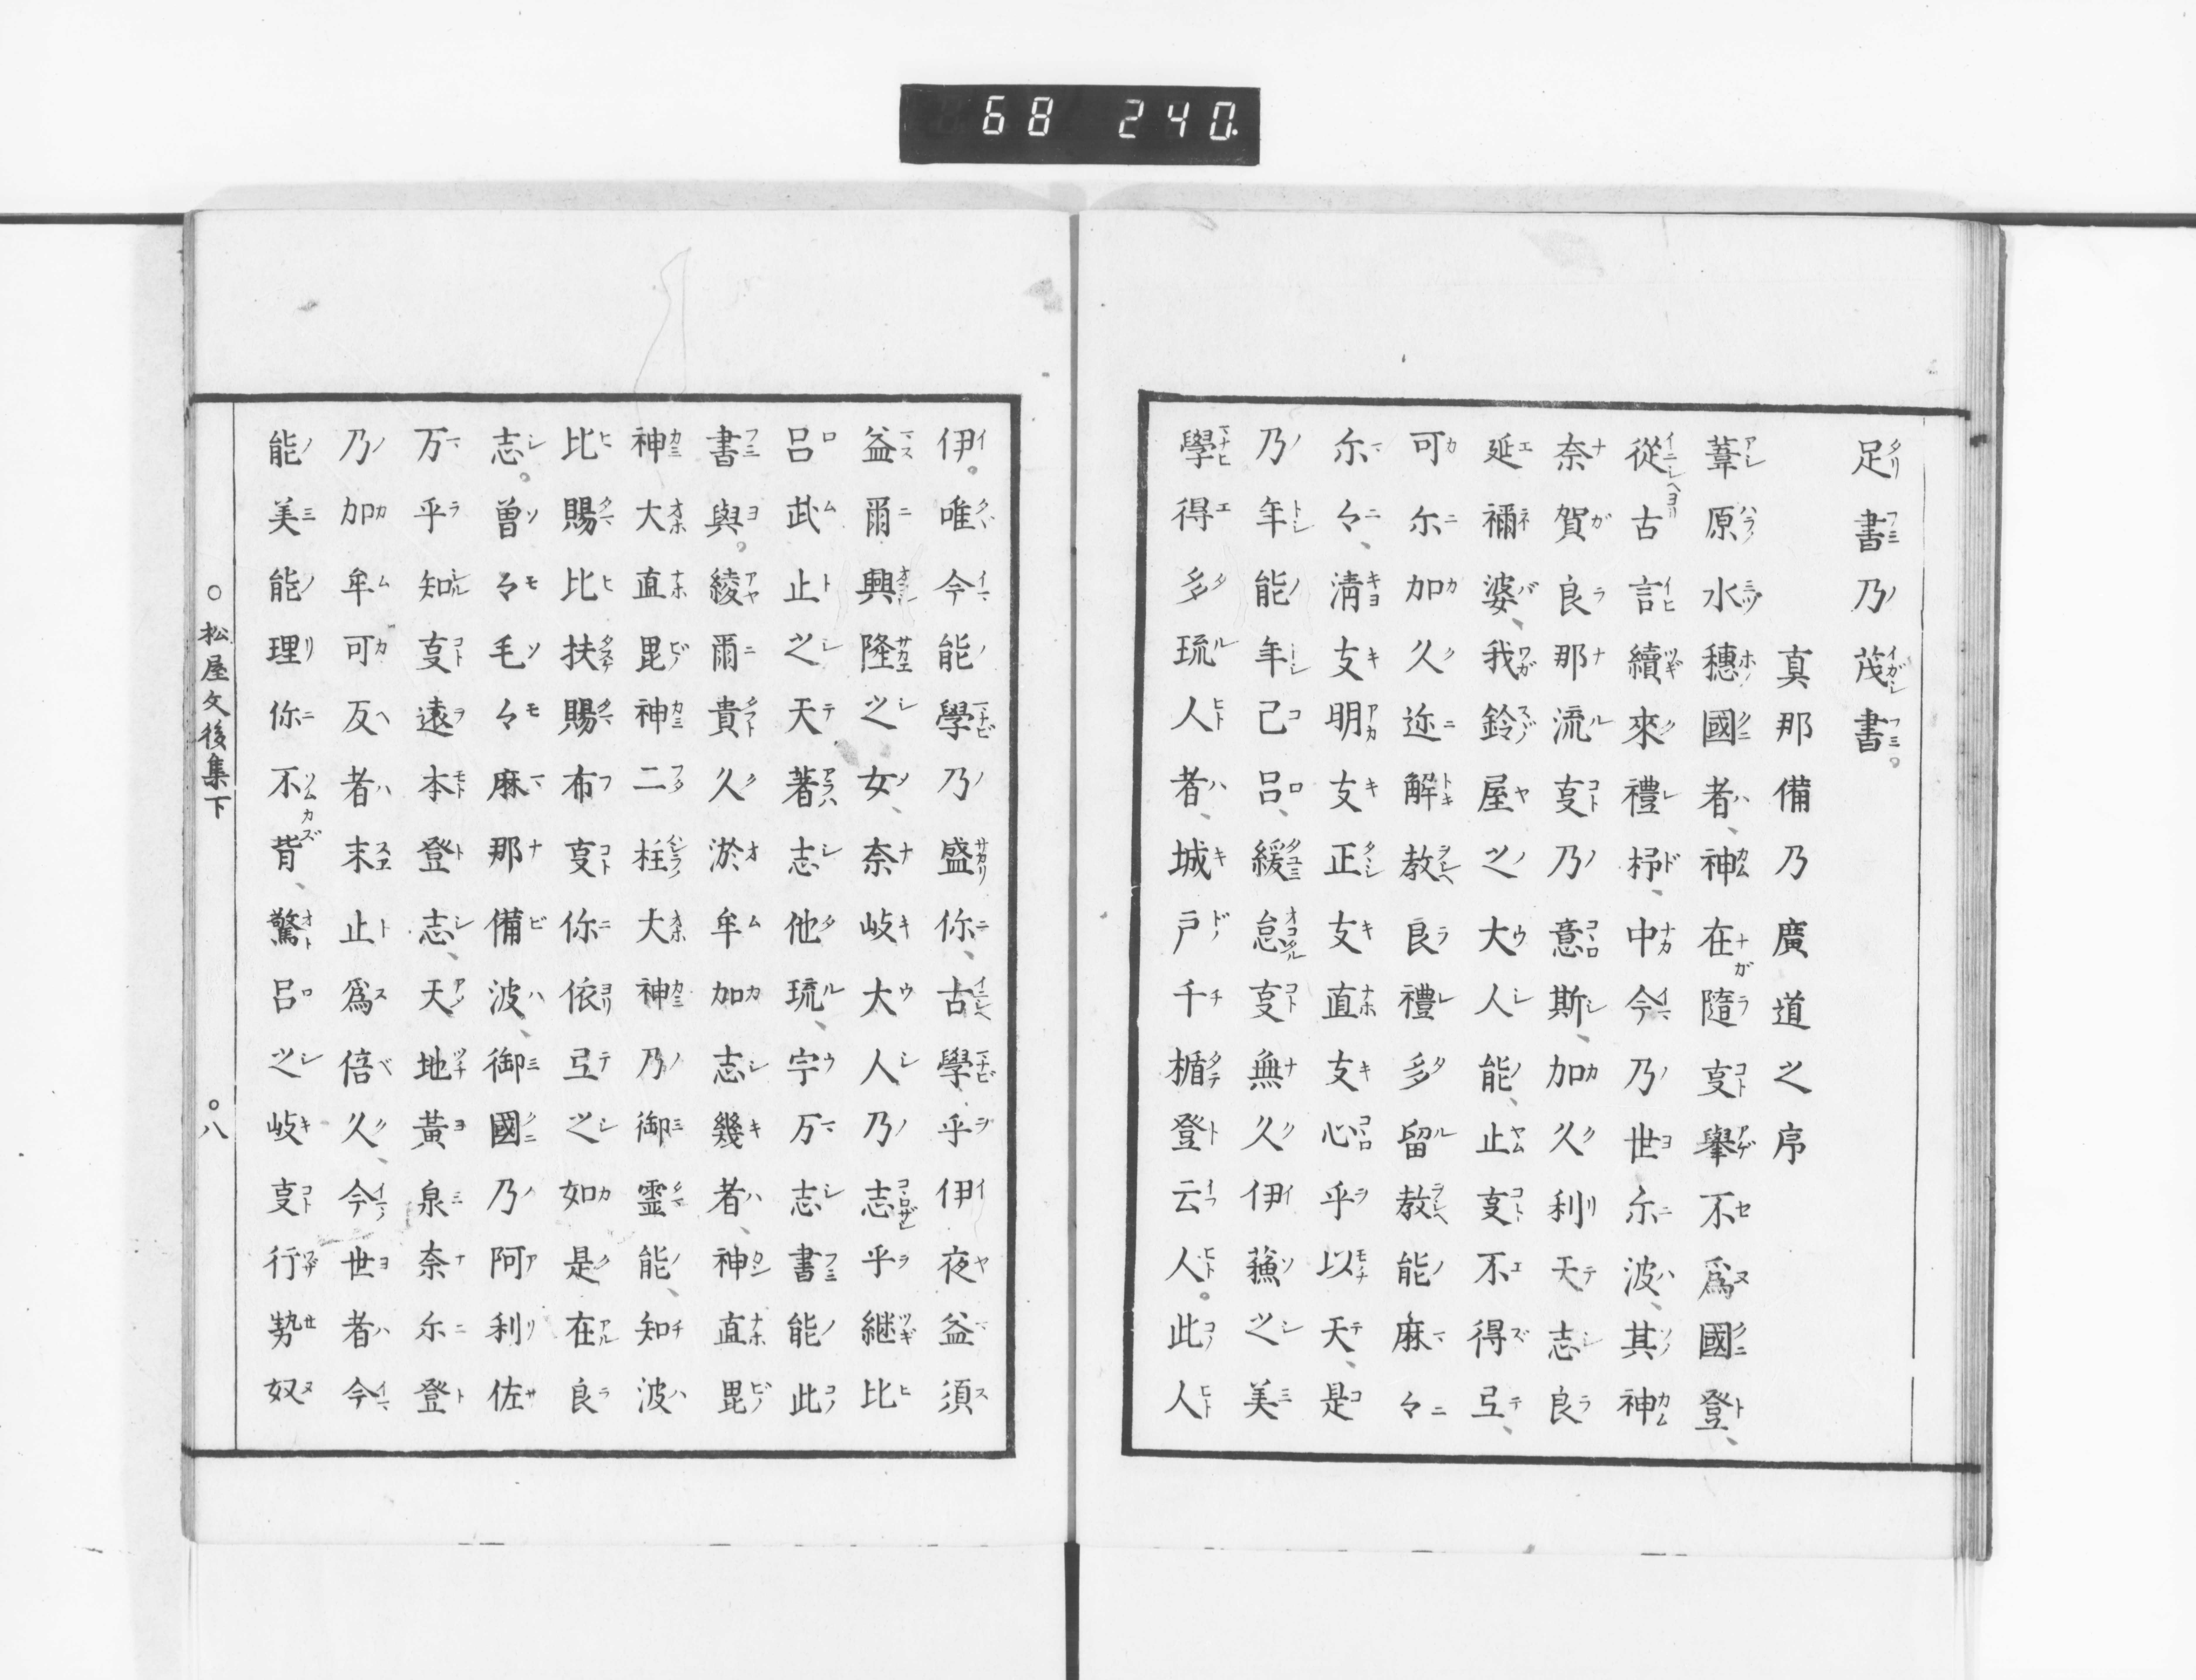 68 240.
足書乃茂書。
真那備乃廣道之序
葦原水穗國者、神在隨叓擧不爲國登、
從古言續來禮杼、中今乃世尓波、其神
奈賀良那流叓乃意斯、加久利天志良
延禰婆、我鈴屋之大人能、止叓不得弖、
可尓加久迩解教良禮多留教能麻々
尓々、淸支明支正支直支心乎以天、是
乃年能年己呂、緩怠叓無久伊蘓之美
學得多琉人者、城戸千楯登云人。此人
伊。唯今能學乃盛你、古學乎伊夜益須
益爾興隆之女、奈岐大人乃志乎継比
呂武止之天著志他琉、宇万志書能此
書與。綾爾貴久淤牟加志幾者、神直毘
神大直毘神二柱大神乃御霊能、知波
比賜比扶賜布叓你依弖之如是在良
志。曽々毛々麻那備波、御國乃阿利佐
万乎知叓遠本登志、天地黄泉奈尓登
乃加牟可反者末止爲倍久、今世者今
能美能理你不背、驚呂之岐叓行勢奴
○松屋文後集下 ○八